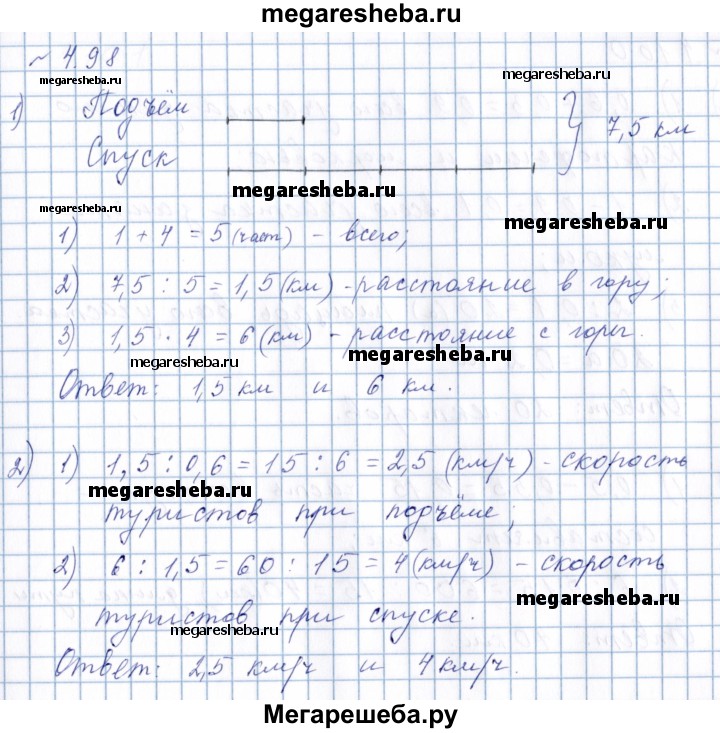 megaresheba.ru
~ 4.98
megaresheba.ru
megaresheba.ru
1) Подъём
7,5 км
Спуск
megaresheba.ru
megaresheba.ru
megaresheba.ru
1) 1 + 4 = 5 (част) - всего;
2) 7,5 : 5 = 1,5 (км) - расстояние в гору;
3) 1,5 · 4 = 6 (км) - расстояние с горы.
megaresheba.ru
megaresheba.ru
Ответ: 1,5 км и 6 км.
2) 1) 1,5 : 0,6 = 15 : 6 = 2,5 (км/ч) - скорость
megaresheba.ru
туристов при подъёме;
2) 6 : 1,5 = 60 : 15 = 4 (км/ч) - скорость
megaresheba.ru
туристов при спуске.
megaresheba.ru
Ответ: 2,5 км/ч и 4 км/ч.
Мегарешеба.ру